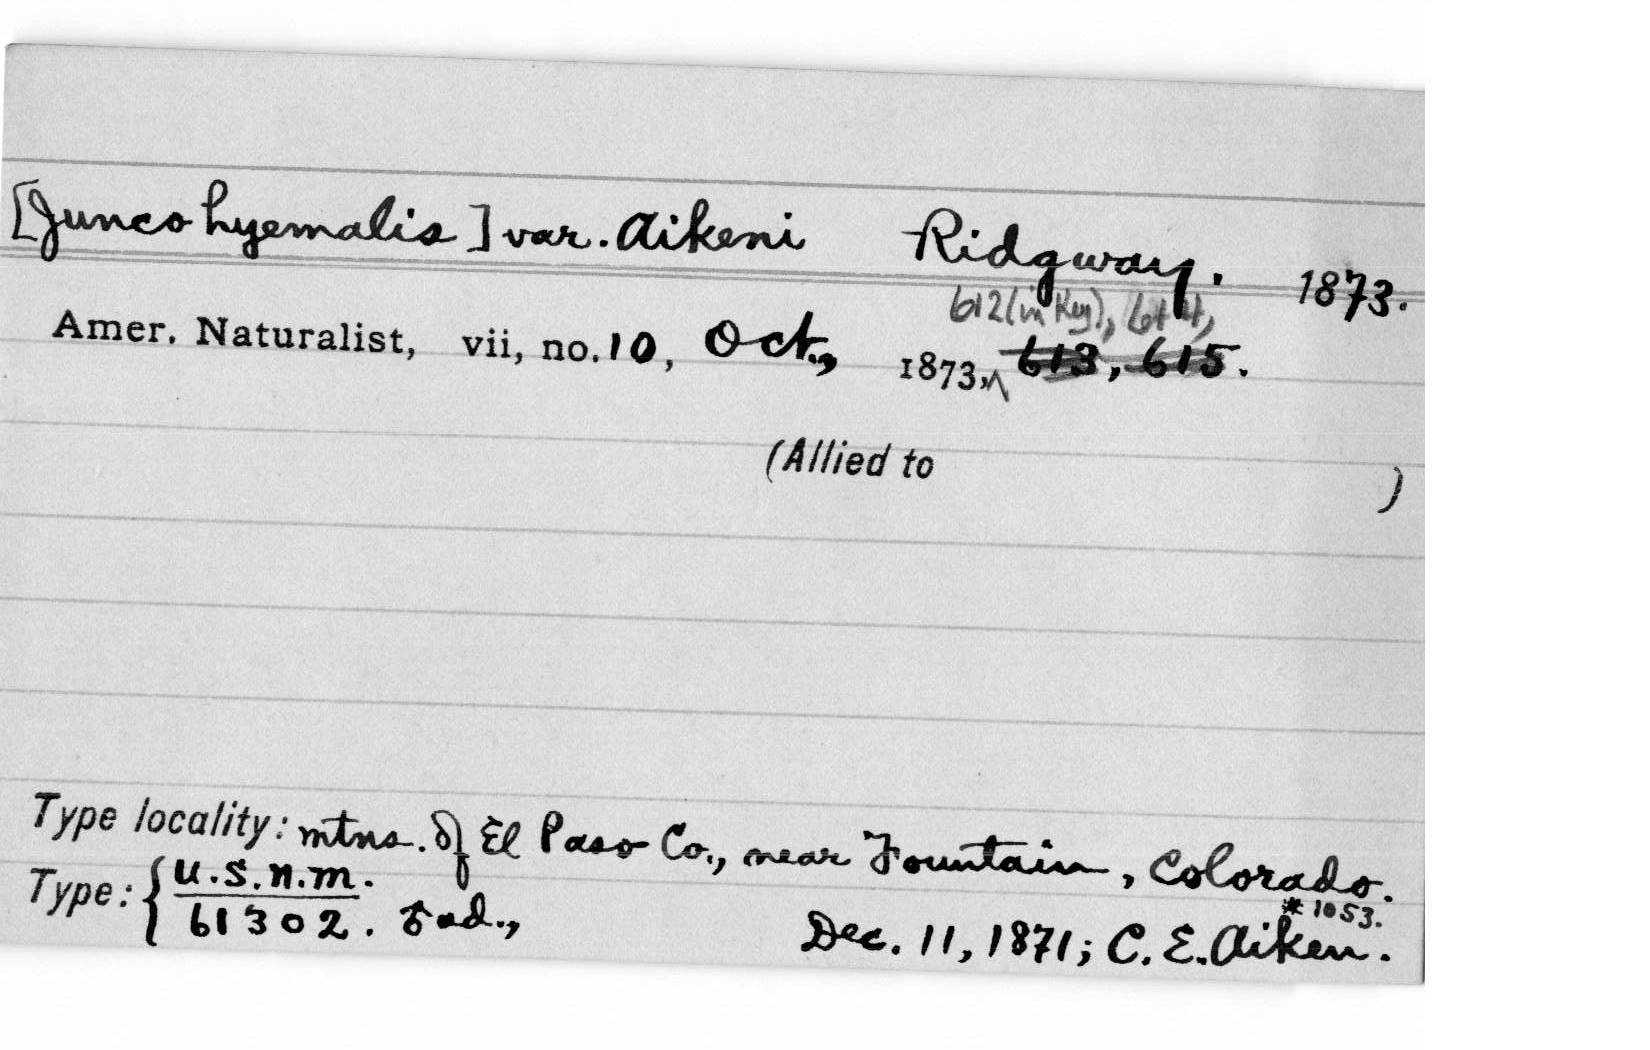 [Junco hyemalis] var. Aikeni Ridgway. 1873.
612 (in Key),
Amer. Naturalist, vii, no. 10, Oct., 1873, ^ 613, 615.
(Allied to )
Type locality: mtns. of El Paso Co., near Fountain, Colorado.
Type: { U.S.N.M. * 1053.
61302. ad., Dec. 11, 1871; C. E. Aiken.